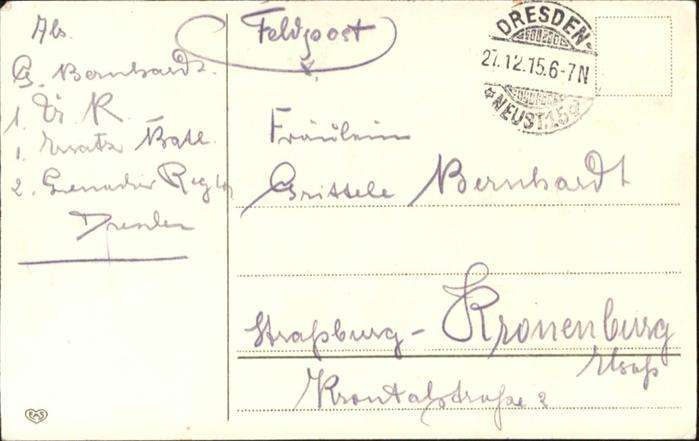 Abs.
G. Bernhardt.
1. Ers. R
1. Ersatz Batl.
2. Grenadier Reg
Dresden
Feldpost
DRESDEN-
27.12.15.6-7N
*NEUST.15
Fräulein
Grittele Bernhardt
Straßburg-Kronenburg
Elsaß
Krontalstraße 2
EAS